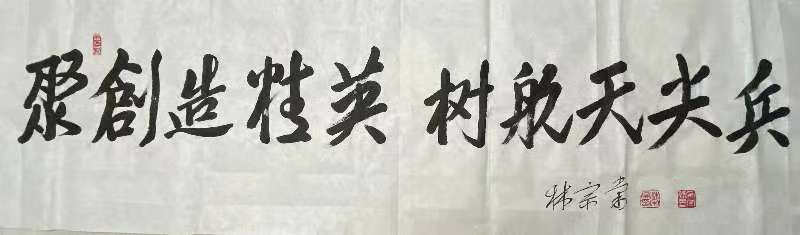 聚創造精英 树航天尖兵
林宗棠